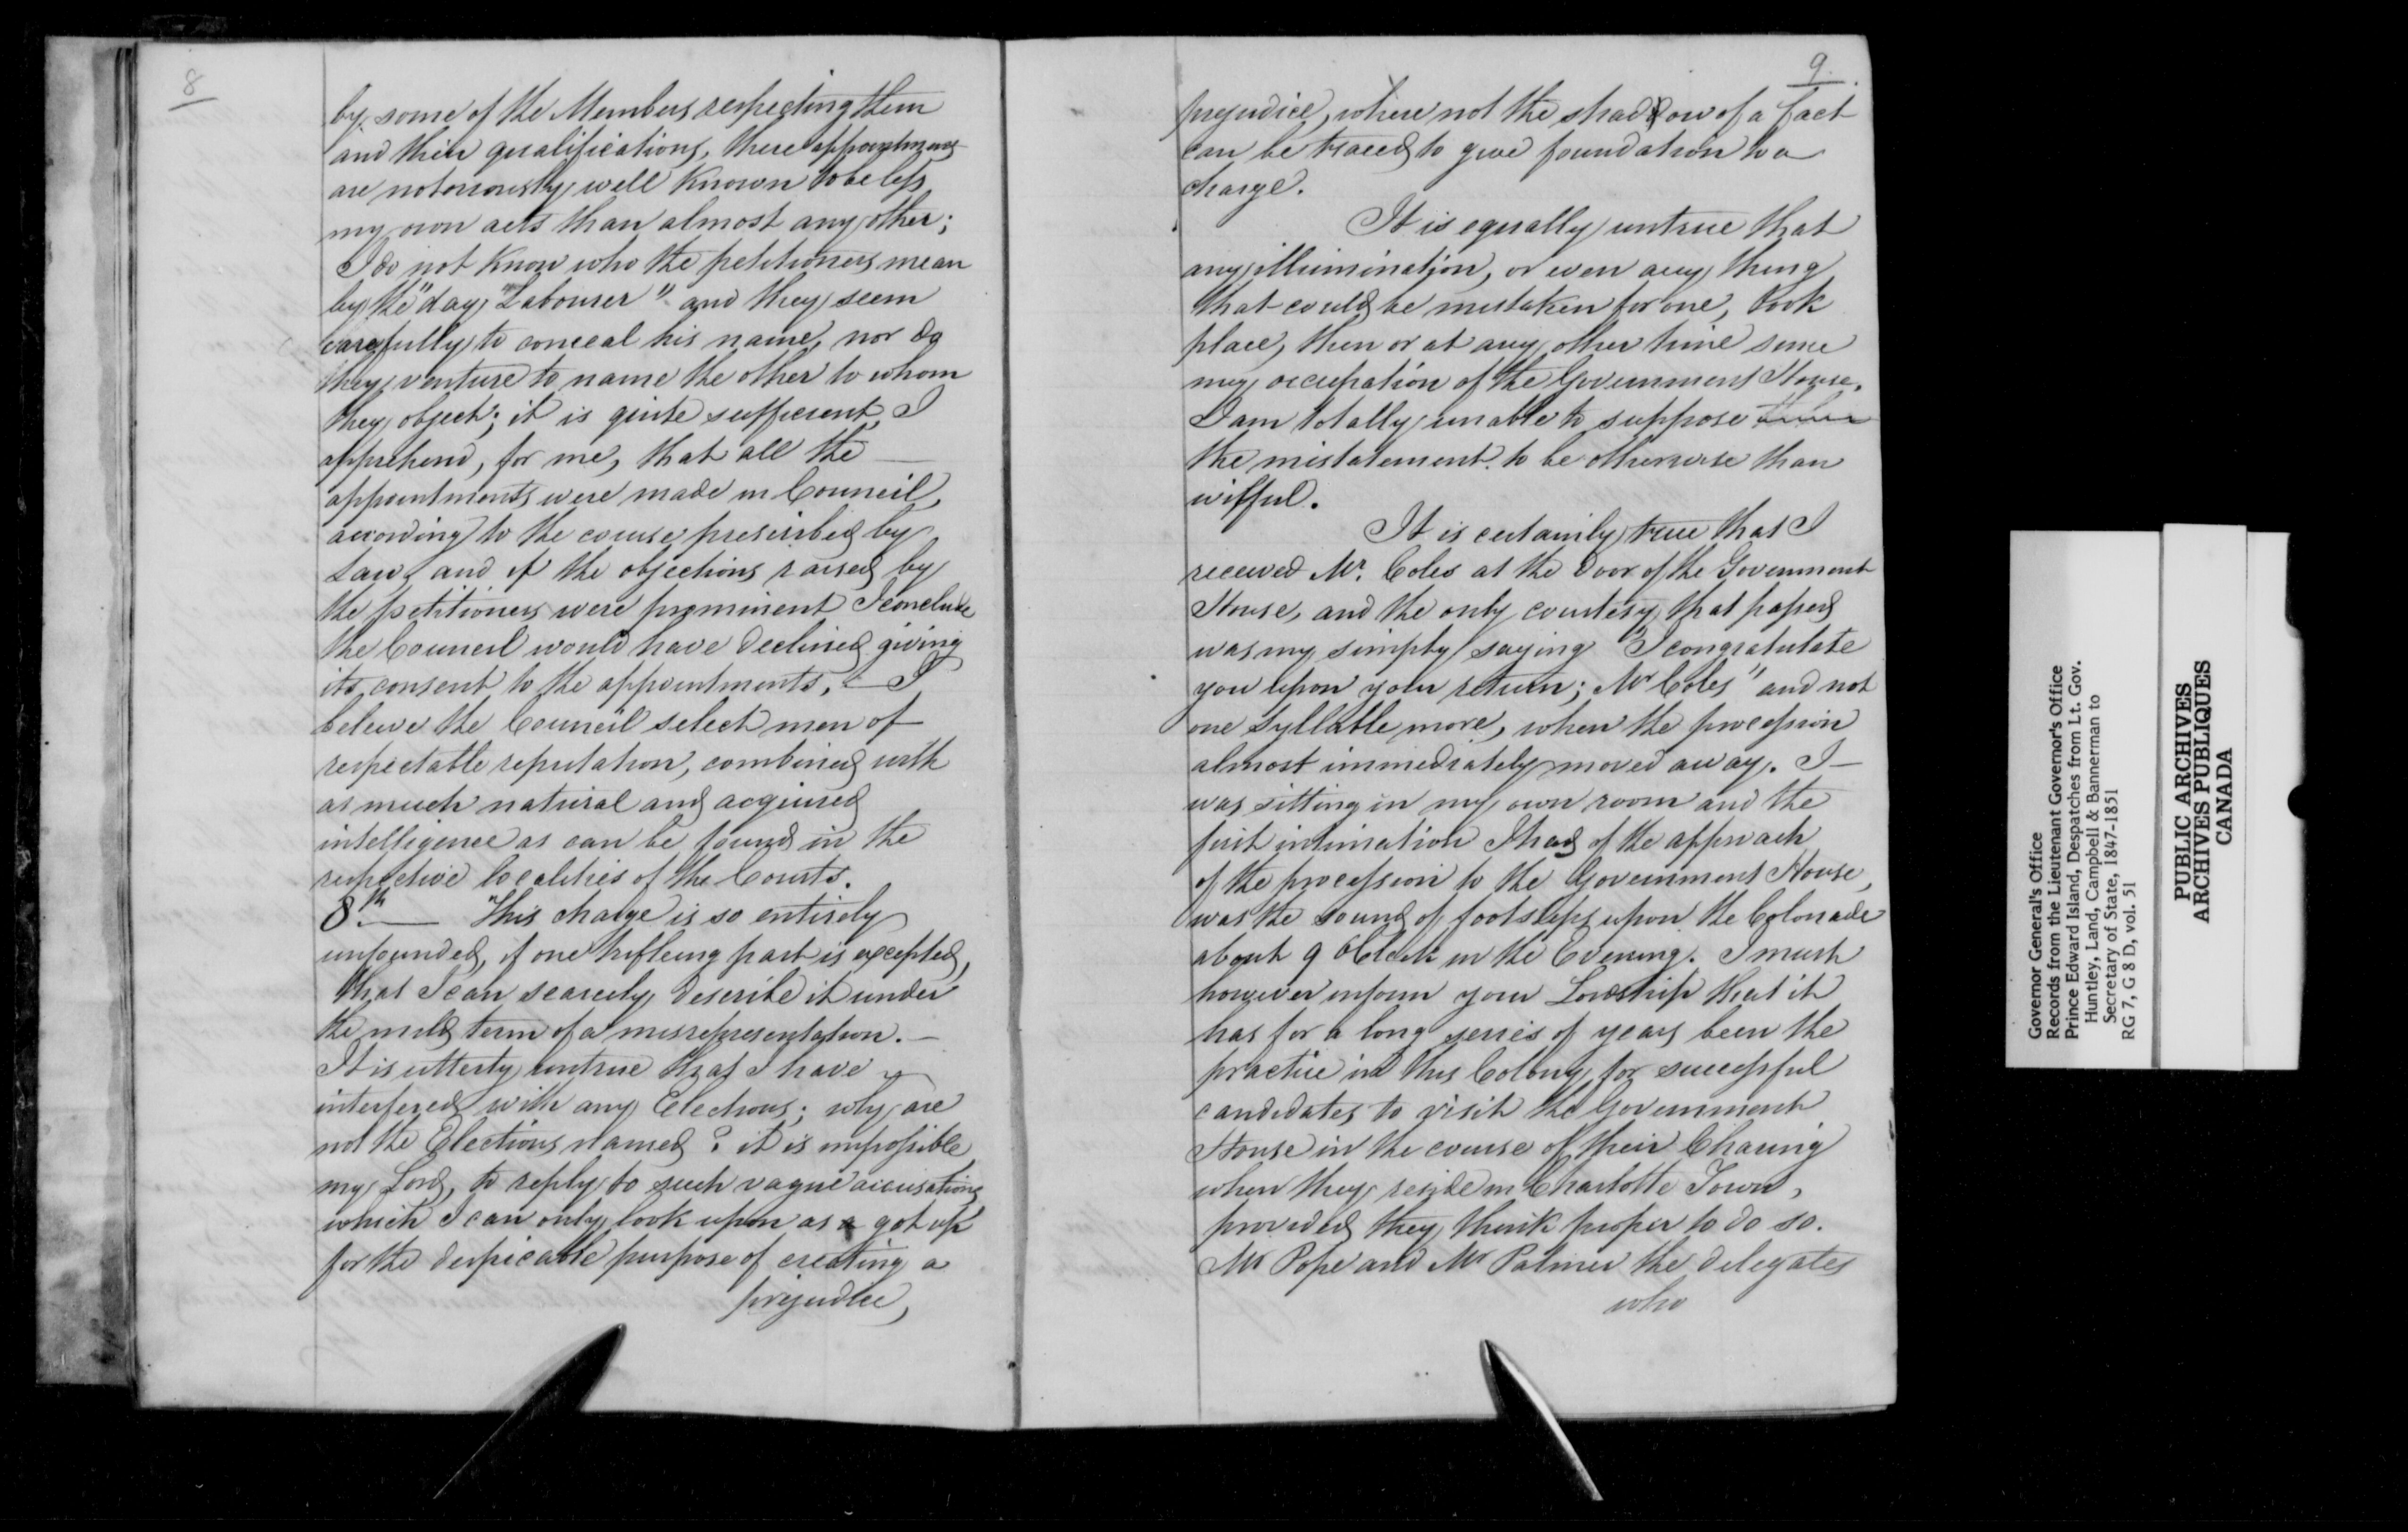 8
by some of the Members respecting them
and their qualifications, these appointments
are notoriously well known to be less
my own acts than almost any other;
I do not know who the petitioners mean
by the "day Labourer" and they seem
carefully to conceal his name, nor do
they venture to name the other to whom
they object; it is quite sufficient, I
apprehend, for me, that all the
appointments were made in Council,
according to the course prescribed by
Law, and if the objections raised by
the petitioners were prominent I conclude
the Council would have declined giving
its consent to the appointments. — I
beleive the Council select men of
respectable reputation, combined with
as much natural and acquired
intelligence as can be found in the
respective localities of the Courts.
8th — This charge is so entirely
unfounded, if one trifleing part is excepted,
that I can scarcely describe it under
the mild term of a misrepresentation. —
It is utterly untrue that I have
interfered with any Elections; why are
not the Elections named? it is impossible,
my Lord, to reply to such vague accusations
which I can only look upon as got up
for the despicable purpose of creating a
prejudice,
9
prejudice, where not the shadow of a fact
can be traced to give foundation to a
charge.
It is equally untrue that
any illumination, or even any thing
that could be mistaken for one, took
place, then or at any other time since
my occupation of the Government House.
I am totally unable to suppose
the mistatement to be otherwise than
wilful.
It is certainly true that I
received Mr. Coles at the door of the Government
House, and the only courtesy that passed
was my simply saying "I congratulate
you upon your return; Mr Coles" and not
one syllable more, when the procession
almost immediately moved away. I
was sitting in my own room and the
first intimation I had of the approach
of the procession to the Government House,
was the sound of footsteps upon the Colonade
about 9 OClock in the Evening. I must
however inform your Lordship that it
has for a long series of years been the
practice in this Colony for successful
candidates to visit the Government
House in the course of their Chairing
when they reside in Charlotte Town,
provided they think proper to do so.
Mr Pope and Mr Palmer the delegates
who
Governor General's Office
Records from the Lieutenant Governor's Office
Prince Edward Island, Despatches from Lt. Gov.
Huntley, Land, Campbell & Bannerman to
Secretary of State, 1847-1851
RG 7, G 8 D, vol. 51
PUBLIC ARCHIVES
ARCHIVES PUBLIQUES
CANADA